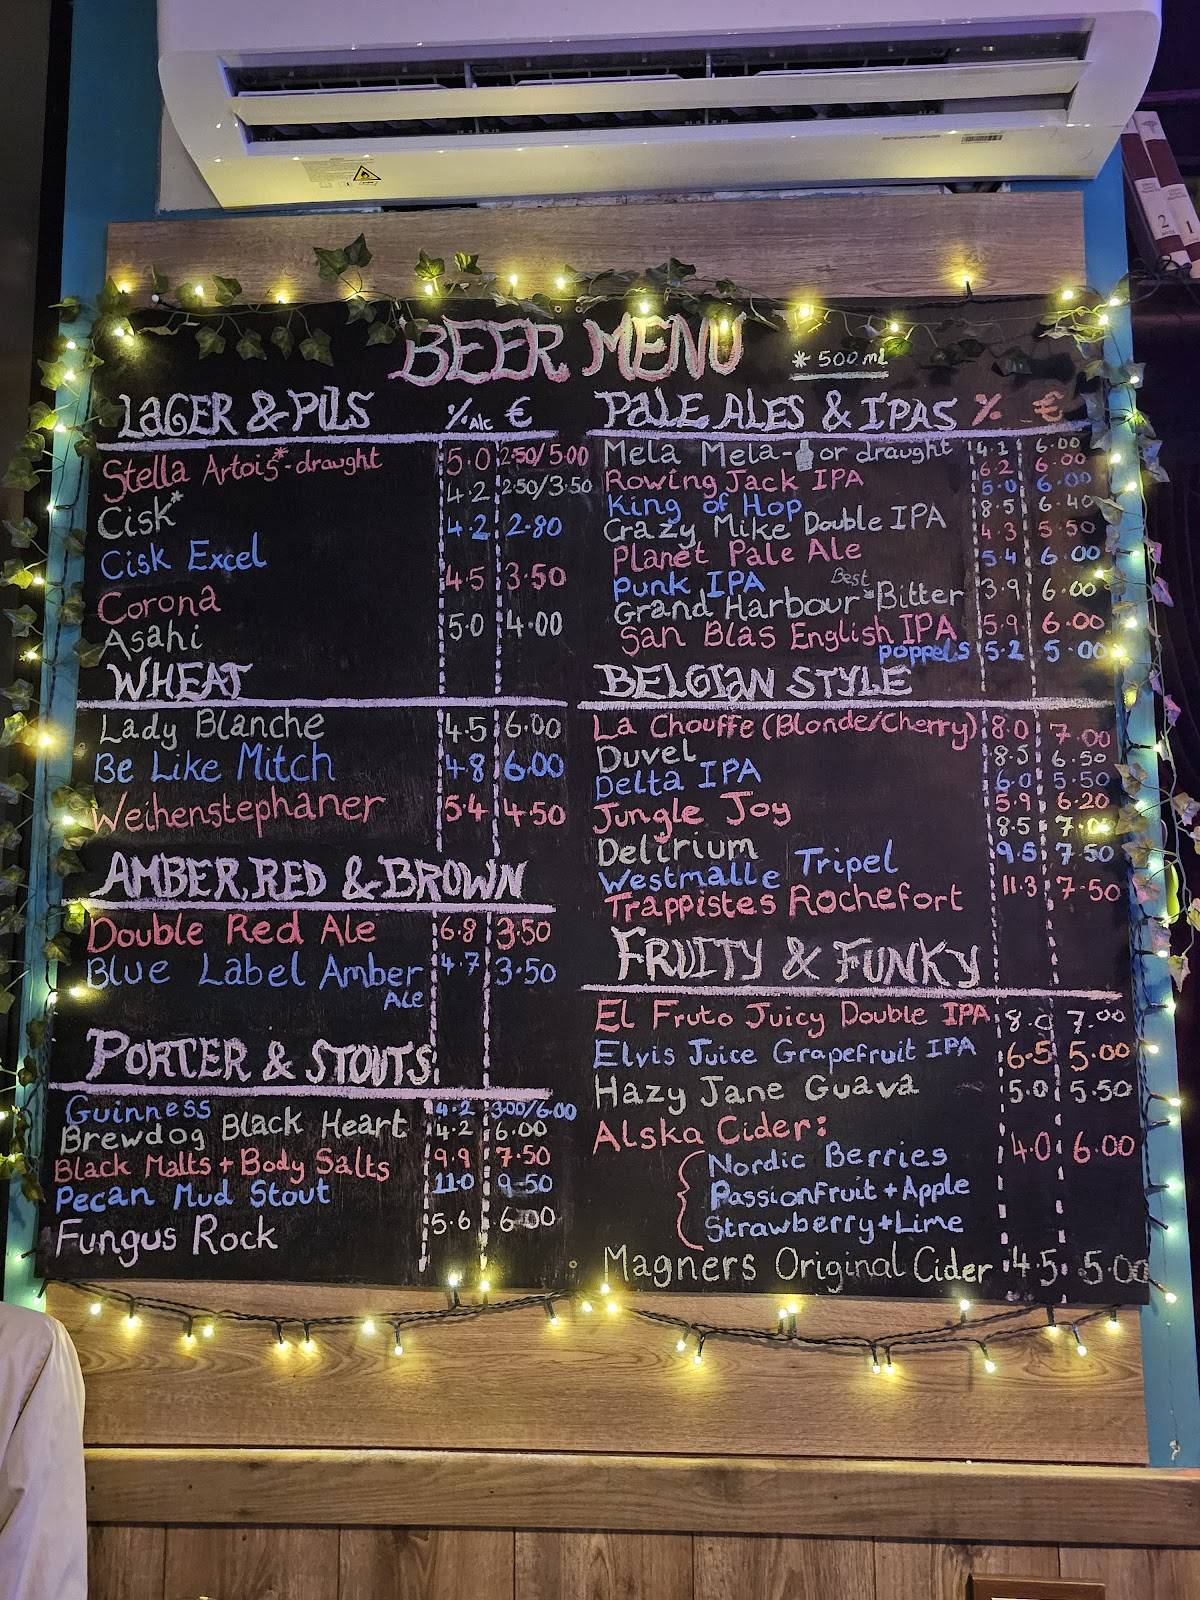 BEER MENU
* 500 mL
LAGER & PILS % Alc €
Stella Artois* - draught 5.0 2.50/5.00
Cisk* 4.2 2.50/3.50
Cisk Excel 4.2 2.80
Corona 4.5 3.50
Asahi 5.0 4.00
WHEAT
Lady Blanche 4.5 6.00
Be Like Mitch 4.8 6.00
Weihenstephaner 5.4 4.50
AMBER, RED & BROWN
Double Red Ale 6.8 3.50
Blue Label Amber 4.7 3.50
Ale
PORTER & STOUTS
Guinness 4.2 3.00/6.00
Brewdog Black Heart 4.2 6.00
Black Malts + Body Salts 9.9 7.50
Pecan Mud Stout 11.0 9.50
Fungus Rock 5.6 6.00
PALE ALES & IPAS % €
Mela Mela - or draught 4.1 6.00
Rowing Jack IPA 6.2 6.00
King of Hop 5.0 6.00
Crazy Mike Double IPA 8.5 6.40
Planet Pale Ale 4.3 5.50
Punk IPA 5.4 6.00
Best
Grand Harbour Bitter 3.9 6.00
San Blas English IPA 5.9 6.00
Poppels 5.2 5.00
BELGIAN STYLE
La Chouffe (Blonde/Cherry) 8.0 7.00
Duvel 8.5 6.50
Delta IPA 6.0 5.50
Jungle Joy 5.9 6.20
Delirium 8.5 7.00
Westmalle Tripel 9.5 7.50
Trappistes Rochefort 11.3 7.50
FRUITY & FUNKY
El Fruto Juicy Double IPA 8.0 7.00
Elvis Juice Grapefruit IPA 6.5 5.00
Hazy Jane Guava 5.0 5.50
Alska Cider: 4.0 6.00
Nordic Berries
Passionfruit + Apple
Strawberry + Lime
Magners Original Cider 4.5 5.00